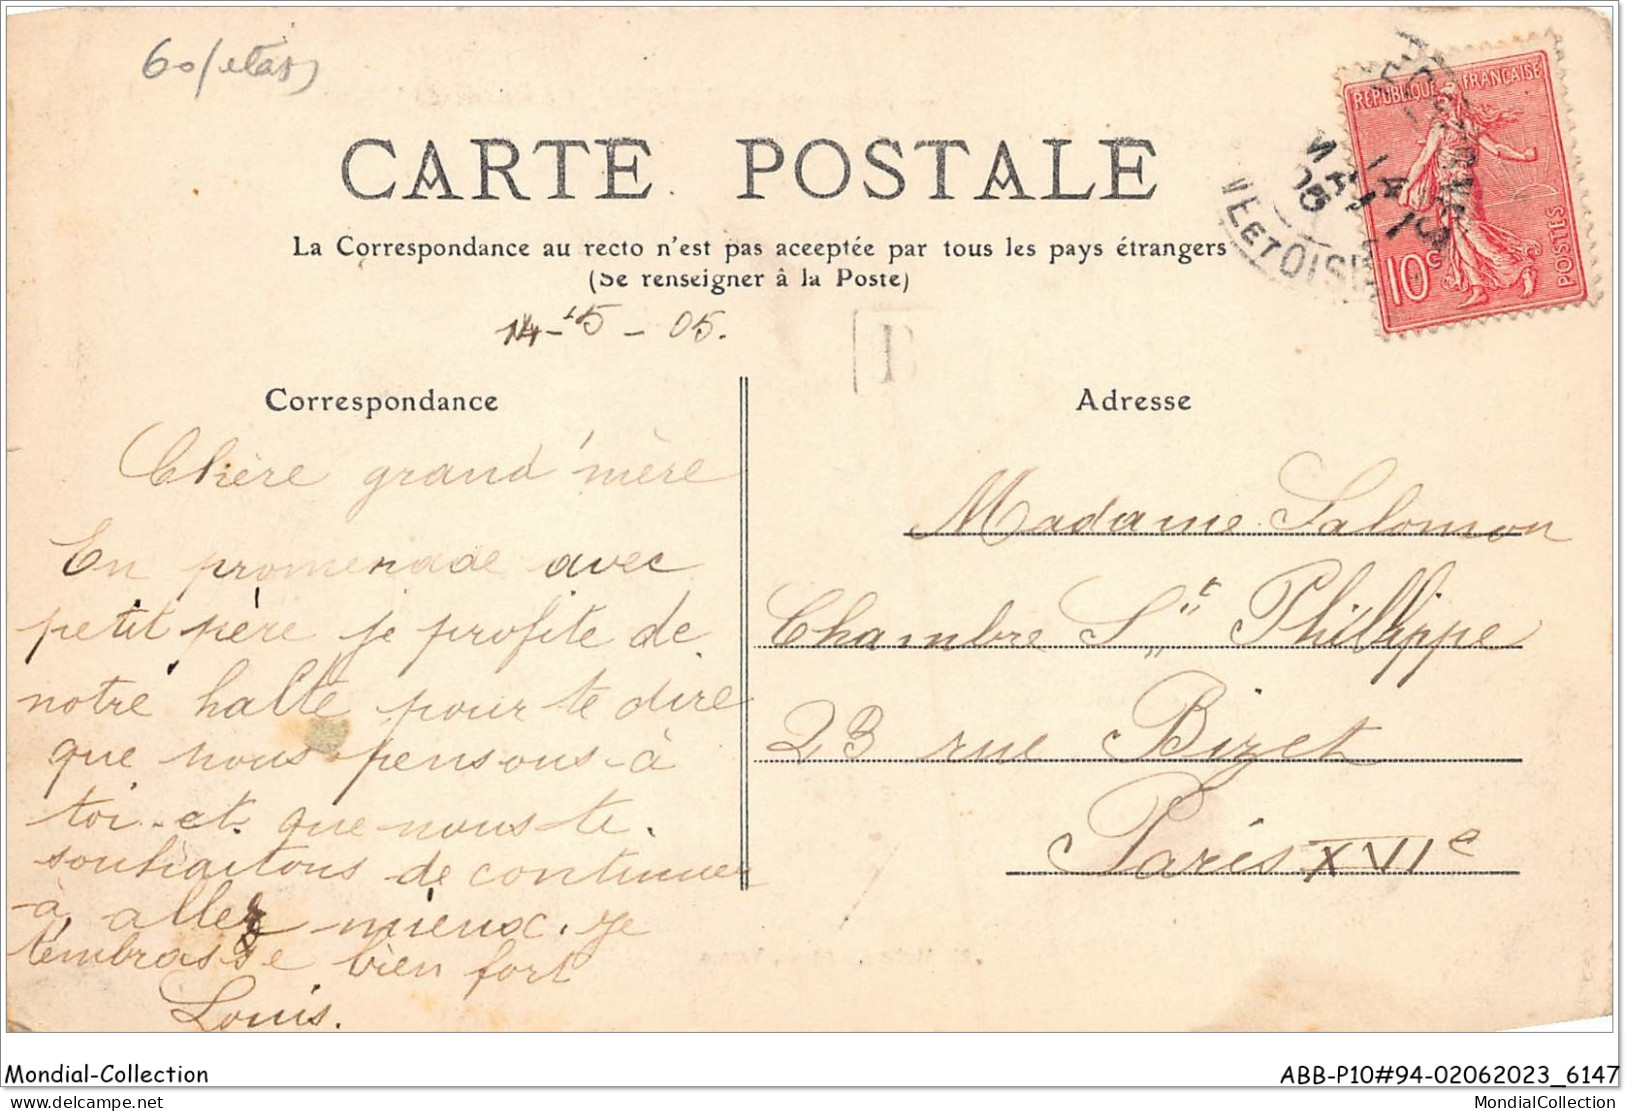 60/etas)
CARTE POSTALE
La Correspondance au recto n'est pas aceeptée par tous les pays étrangers
(Se renseigner à la Poste)
14-5-05.
REPUBLIQUE FRANÇAISE
10c
POSTES
14 MAI 05
ET OISE
T
Correspondance
Chère grand'mère
En promenade avec
petit père je profite de
notre halte pour te dire
que nous pensons à
toi et que nous te
souhaitons de continuer
à aller mieux. Je
t'embrasse bien fort
Louis.
Adresse
Madame Salomon
Chambre St Philippe
23 rue Bizet
Paris XVIe
Mondial-Collection
ABB-P10#94-02062023_6147
delcampe.net
MondialCollection